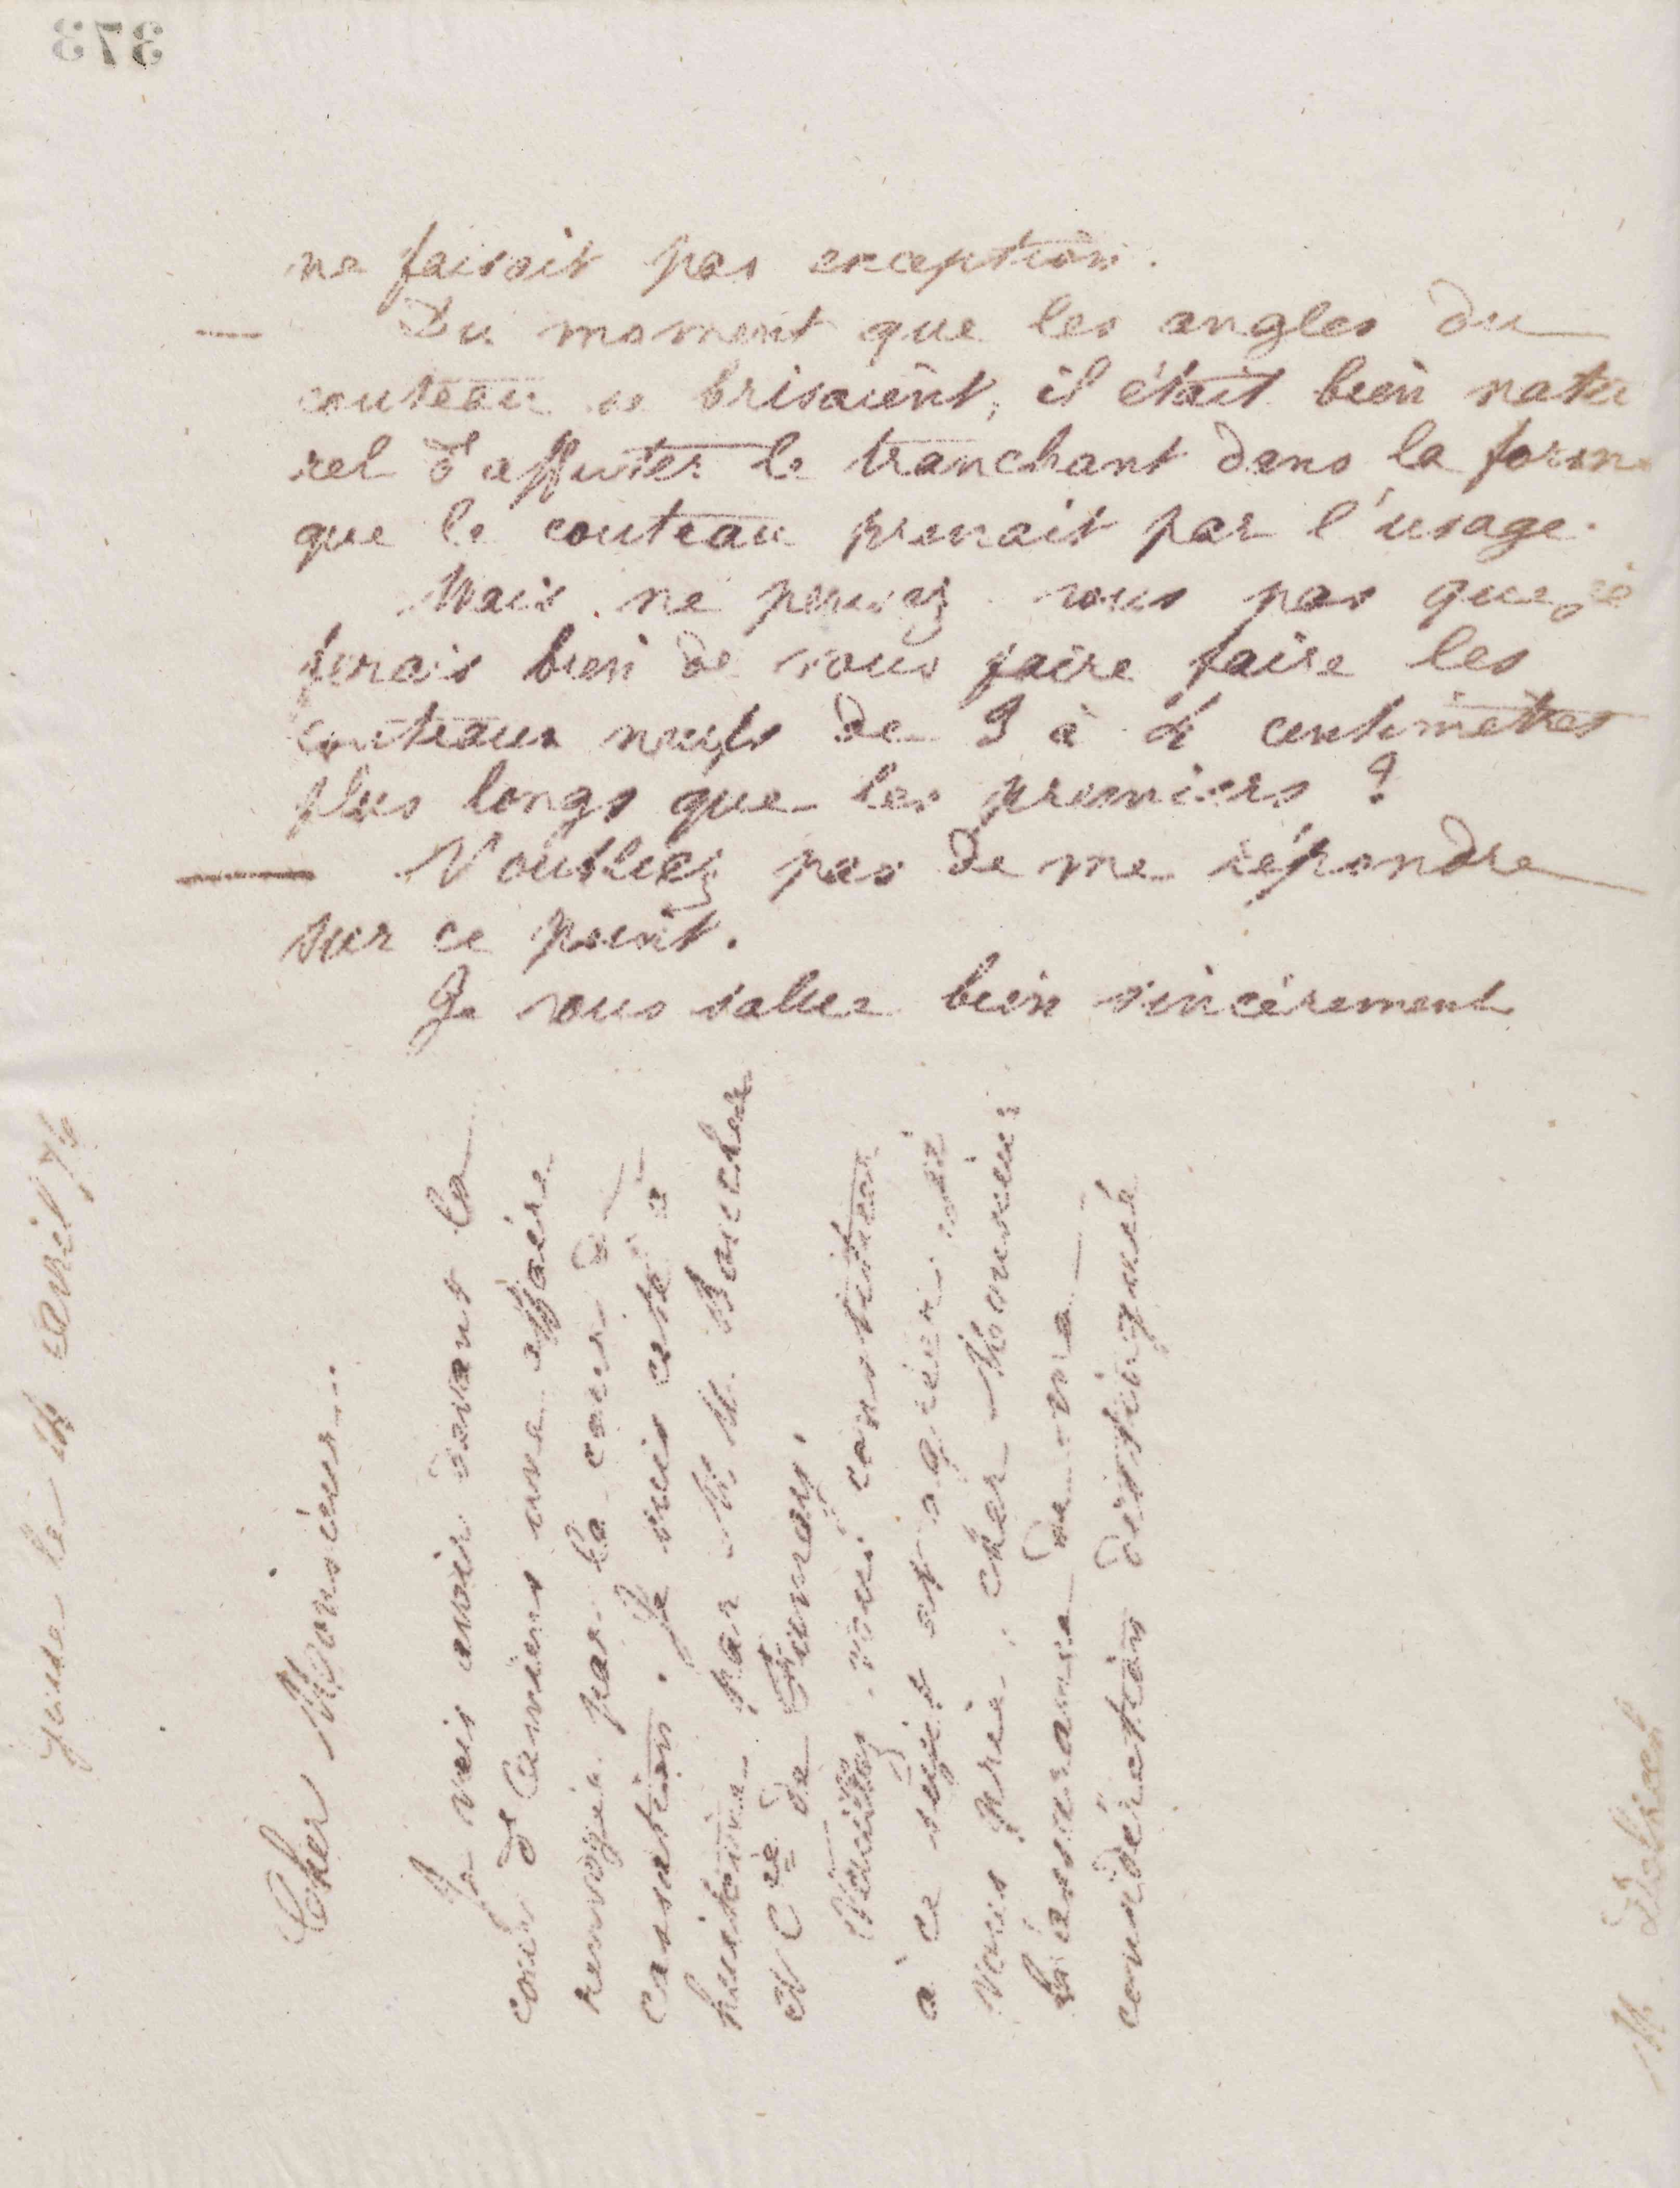 373
ne faisait pas exception.
— Du moment que les angles du
couteau se brisaient, il était bien natu
rel d'affuter le tranchant dans la forme
que le couteau prenait par l'usage.
Mais ne pensez vous pas que je
ferais bien de vous faire faire les
couteaux neufs de 3 à 4 centimètres
plus longs que les premiers ?
— N'oubliez pas de me répondre
sur ce point.
Je vous salue bien sincèrement
Guise le 14 avril 74
Cher Monsieur
Je vais avoir devant la
cour d'Amiens une affaire
renvoyée par la cour de
Cassation. Je suis cité à
huitaine par M M Boucher
et Cie de Fumay.
Veuillez vous constituer
à ce sujet et agréer je
vous prie, cher Monsieur
l'assurance de ma
considération distinguée
M Delpech